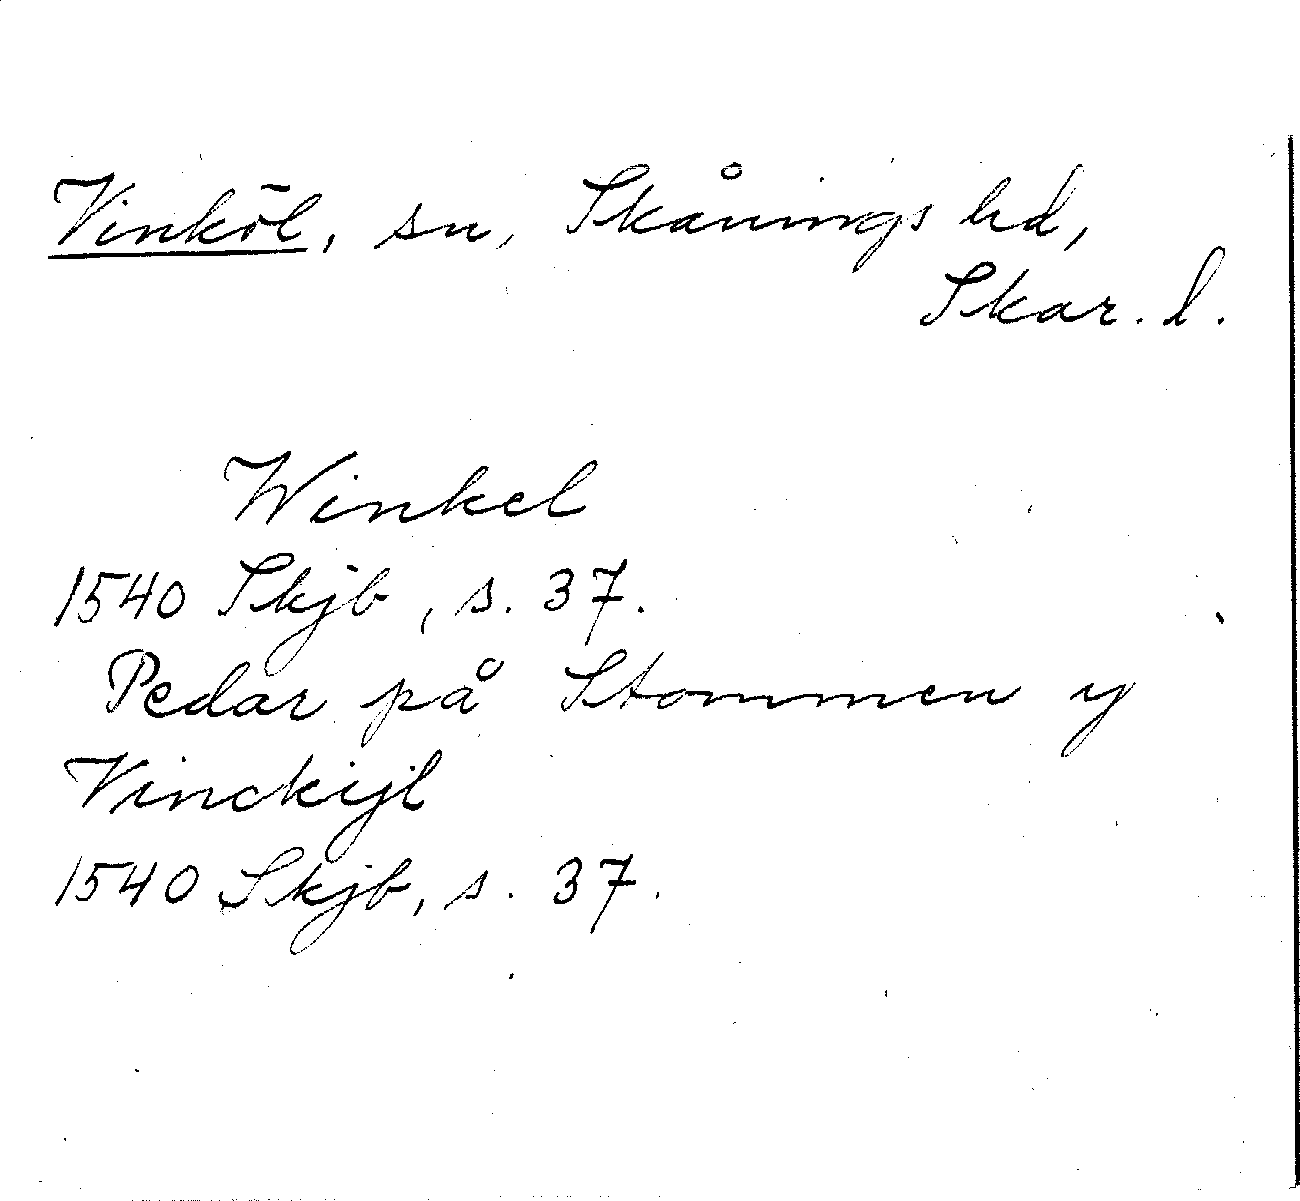 Vinköl, sn, Skånings hd,
Skar. l.
Winkel
1540 Skjb, s. 37.
Pedar på Stommen y
Vinckijl
1540 Skjb, s. 37.